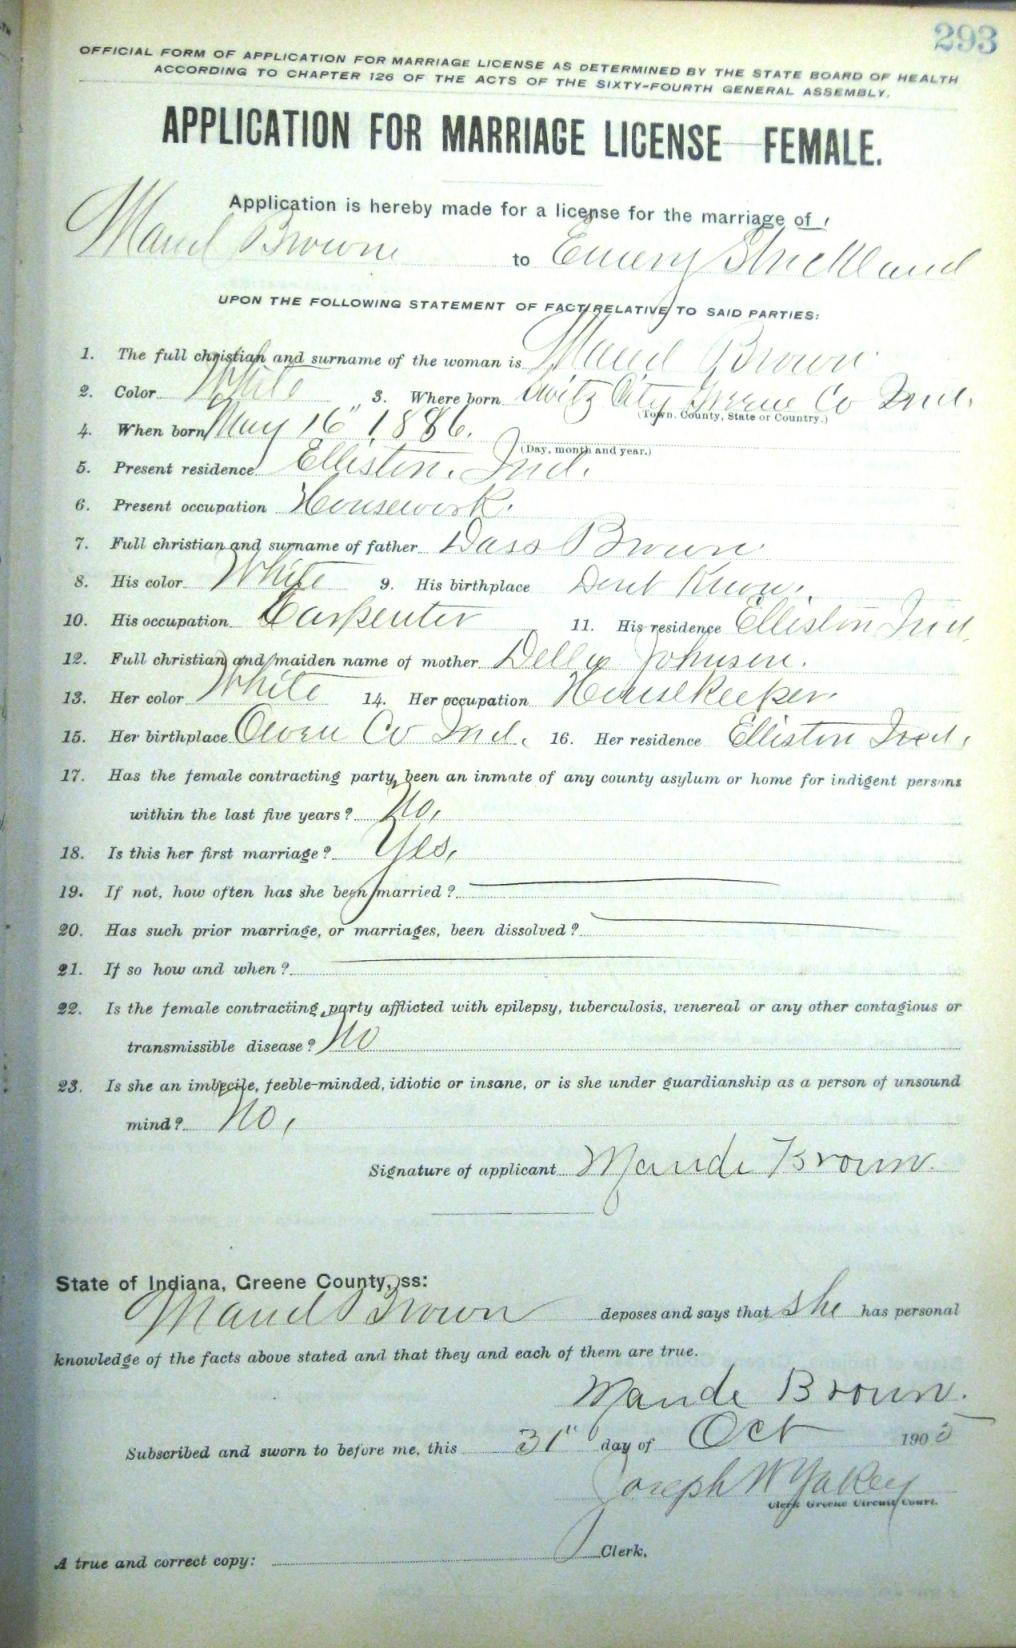 293
OFFICIAL FORM OF APPLICATION FOR MARRIAGE LICENSE AS DETERMINED BY THE STATE BOARD OF HEALTH
ACCORDING TO CHAPTER 126 OF THE ACTS OF THE SIXTY-FOURTH GENERAL ASSEMBLY.
APPLICATION FOR MARRIAGE LICENSE—FEMALE.
Application is hereby made for a license for the marriage of
Maud Brown to Emery Strickland
UPON THE FOLLOWING STATEMENT OF FACT RELATIVE TO SAID PARTIES:
1. The full christian and surname of the woman is Maud Brown
2. Color White 3. Where born Switz City Greene Co Ind.
(Town, County, State or Country.)
4. When born May 16" 1886.
(Day, month and year.)
5. Present residence Elliston. Ind.
6. Present occupation Housework.
7. Full christian and surname of father Dass Brown
8. His color White 9. His birthplace Dont Know.
10. His occupation Carpenter 11. His residence Elliston Ind.
12. Full christian and maiden name of mother Della Johnson.
13. Her color White 14. Her occupation Housekeeper
15. Her birthplace Owen Co Ind. 16. Her residence Elliston Ind.
17. Has the female contracting party been an inmate of any county asylum or home for indigent persons
within the last five years? No.
18. Is this her first marriage? Yes.
19. If not, how often has she been married?
20. Has such prior marriage, or marriages, been dissolved?
21. If so how and when?
22. Is the female contracting party afflicted with epilepsy, tuberculosis, venereal or any other contagious or
transmissible disease? No
23. Is she an imbecile, feeble-minded, idiotic or insane, or is she under guardianship as a person of unsound
mind? No.
Signature of applicant Maude Brown.
State of Indiana, Greene County, ss:
Maud Brown deposes and says that she has personal
knowledge of the facts above stated and that they and each of them are true.
Maude Brown.
Subscribed and sworn to before me, this 31" day of Oct 1905
Joseph W Yakey
Clerk Greene Circuit Court.
A true and correct copy: Clerk.